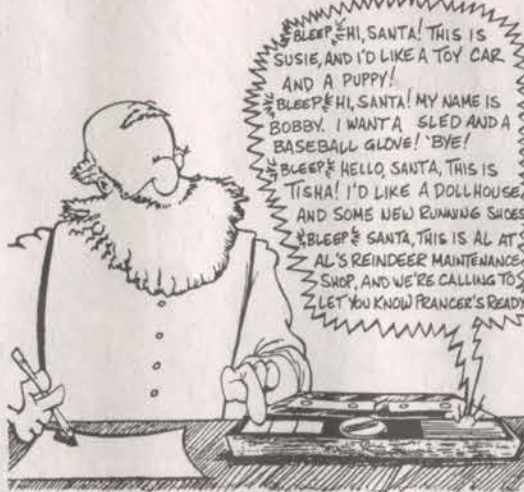 BLEEP HI, SANTA! THIS IS
SUSIE, AND I'D LIKE A TOY CAR
AND A PUPPY!
BLEEP HI, SANTA! MY NAME IS
BOBBY. I WANT A SLED AND A
BASEBALL GLOVE! 'BYE!
BLEEP HELLO, SANTA, THIS IS
TISHA! I'D LIKE A DOLLHOUSE
AND SOME NEW RUNNING SHOES
BLEEP SANTA, THIS IS AL AT
AL'S REINDEER MAINTENANCE
SHOP, AND WE'RE CALLING TO
LET YOU KNOW PRANCER'S READY